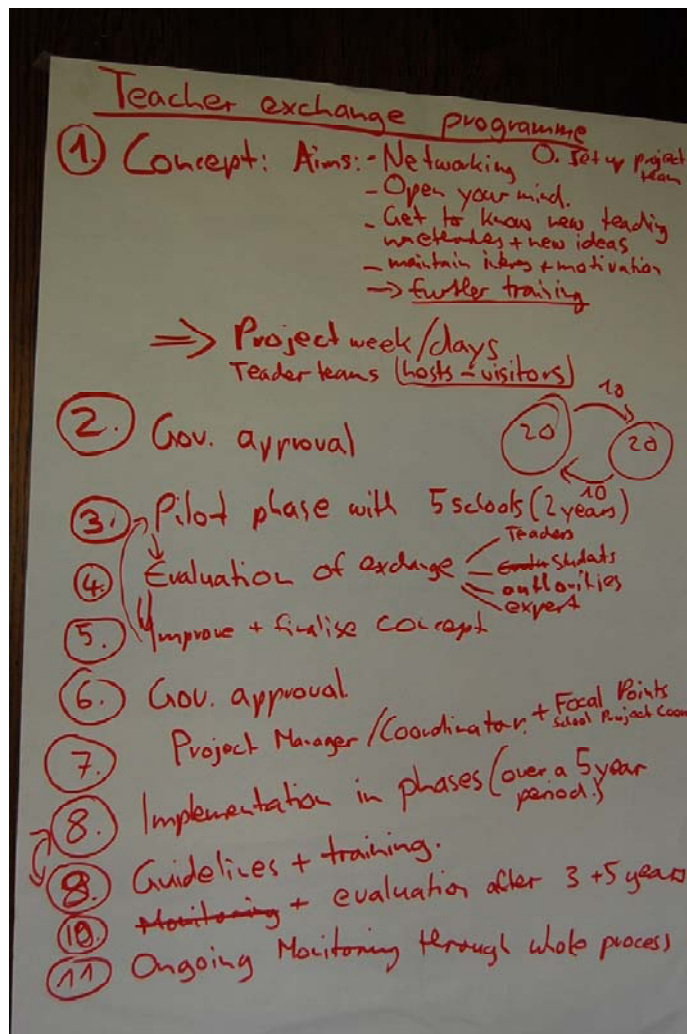 Teacher exchange programme
1. Concept: Aims: - Networking
0. Set up project team
- Open your mind.
- Get to know new teaching
+ new ideas
- maintain + motivation
→ further training
⇒ Project week/days
Teacher teams (hosts - visitors)
10
20
20
10
2. Gov. approval
3. Pilot phase with 5 schools (2 years)
4. Evaluation of exchange
Teachers
students
authorities
expert
5. Improve + finalise concept
6. Gov. approval
7. Project Manager/Coordinator + Focal Points
School Project Coor
8. Implementation in phases (over a 5 year
period!)
9. Guidelines + training.
10. Monitoring + evaluation after 3 + 5 years
11 Ongoing Monitoring through whole process